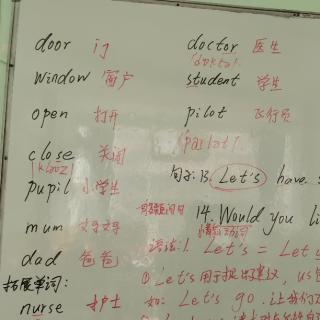 door 门
window 窗户
open 打开
close 关闭
[kləʊz]
pupil 小学生
mum 妈妈
dad 爸爸
拓展单词:
nurse 护士
doctor 医生
student 学生
pilot 飞行员
句子: 13. Let's have
14. Would you li
语法: 1. Let's = Let u
① Let's 用于提出建议, us
如: Let's go. 让我们